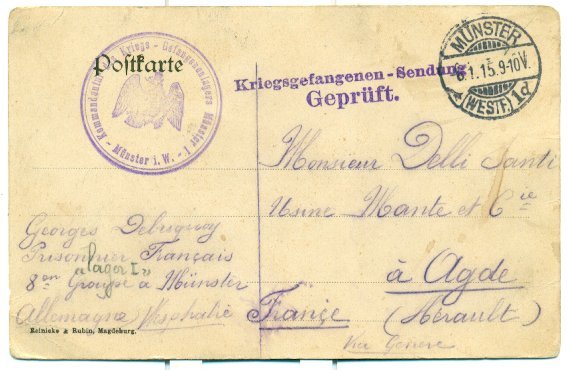 Postkarte
Kommandantur des Kriegs-Gefangenenlagers Münster
- Münster i. W. - 1
Kriegsgefangenen-Sendung
Geprüft.
MÜNSTER
6.1.15.9-10V.
(WESTF.) 1d
Monsieur Delli Santi
Usine Mante et Cie
à Agde
France (Hérault)
Via Genève
Georges
Prisonnier Français
"Lager I"
8en Groupe à Münster
Allemagne Wesphalie
Reinicke & Rubin, Magdeburg.